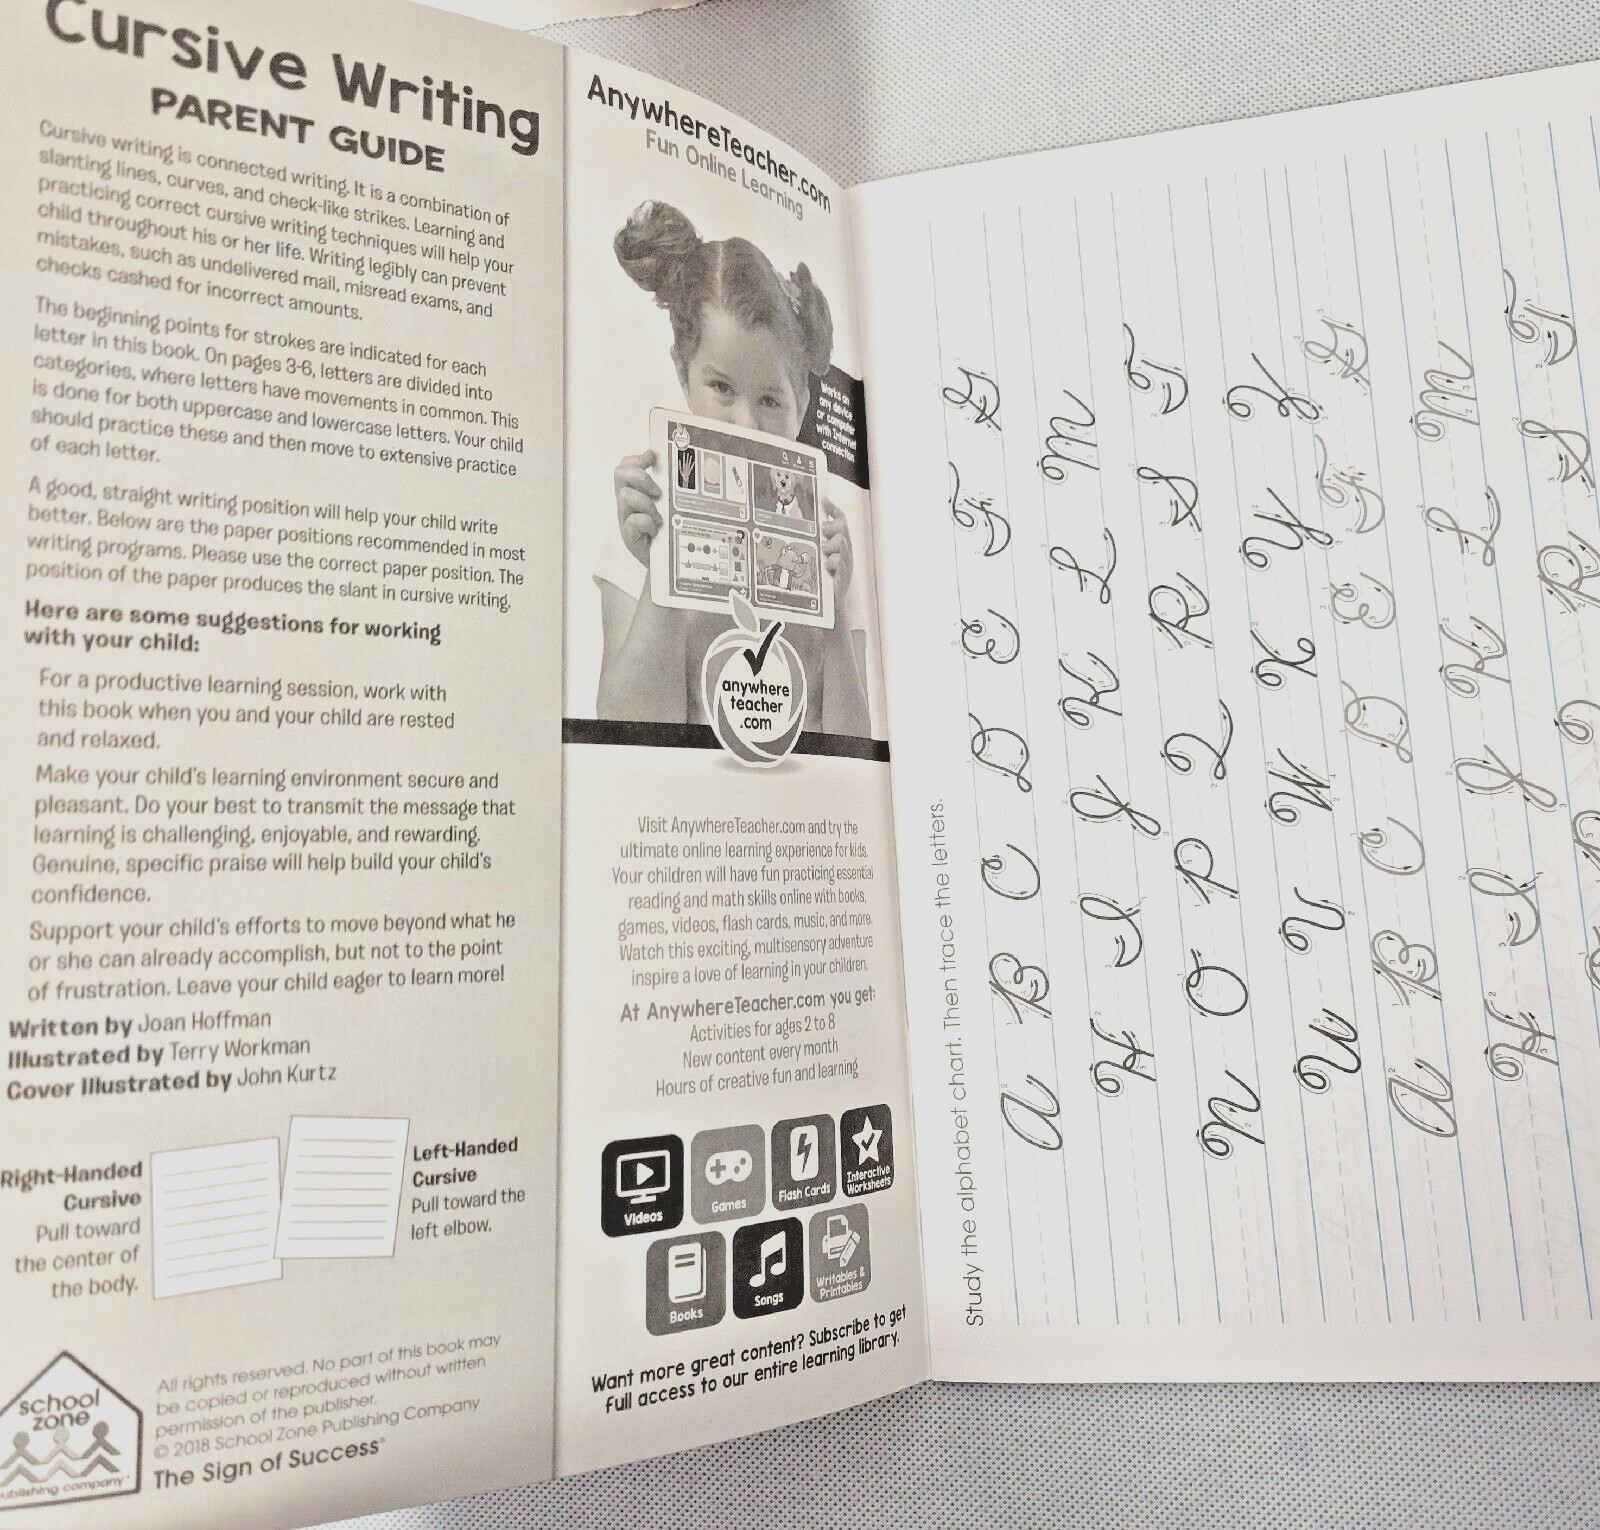 Cursive Writing
PARENT GUIDE
Cursive writing is connected writing. It is a combination of
slanting lines, curves, and check-like strikes. Learning and
practicing correct cursive writing techniques will help your
child throughout his or her life. Writing legibly can prevent
mistakes, such as undelivered mail, misread exams, and
checks cashed for incorrect amounts.
The beginning points for strokes are indicated for each
letter in this book. On pages 3-6, letters are divided into
categories, where letters have movements in common. This
is done for both uppercase and lowercase letters. Your child
should practice these and then move to extensive practice
of each letter.
A good, straight writing position will help your child write
better. Below are the paper positions recommended in most
writing programs. Please use the correct paper position. The
position of the paper produces the slant in cursive writing.
Here are some suggestions for working
with your child:
For a productive learning session, work with
this book when you and your child are rested
and relaxed.
Make your child's learning environment secure and
pleasant. Do your best to transmit the message that
learning is challenging, enjoyable, and rewarding.
Genuine, specific praise will help build your child's
confidence.
Support your child's efforts to move beyond what he
or she can already accomplish, but not to the point
of frustration. Leave your child eager to learn more!
Written by Joan Hoffman
Illustrated by Terry Workman
Cover Illustrated by John Kurtz
Right-Handed
Cursive
Pull toward
the center of
the body.
Left-Handed
Cursive
Pull toward the
left elbow.
school
zone
publishing company
All rights reserved. No part of this book may
be copied or reproduced without written
permission of the publisher.
© 2018 School Zone Publishing Company
The Sign of Success®
AnywhereTeacher.com
Fun Online Learning
Works on
any device
or computer
with Internet
connection
anywhere
teacher
.com
Visit AnywhereTeacher.com and try the
ultimate online learning experience for kids.
Your children will have fun practicing essential
reading and math skills online with books,
games, videos, flash cards, music, and more.
Watch this exciting, multisensory adventure
inspire a love of learning in your children.
At AnywhereTeacher.com you get:
Activities for ages 2 to 8
New content every month
Hours of creative fun and learning
Videos
Games
Flash Cards
Interactive
Worksheets
Books
Songs
Writables &
Printables
Want more great content? Subscribe to get
full access to our entire learning library.
Study the alphabet chart. Then trace the letters.
A B C D E F G
H I J K L M
N O P Q R S T
U V W X Y Z
A B C D E F G
H I J K L M
R S T